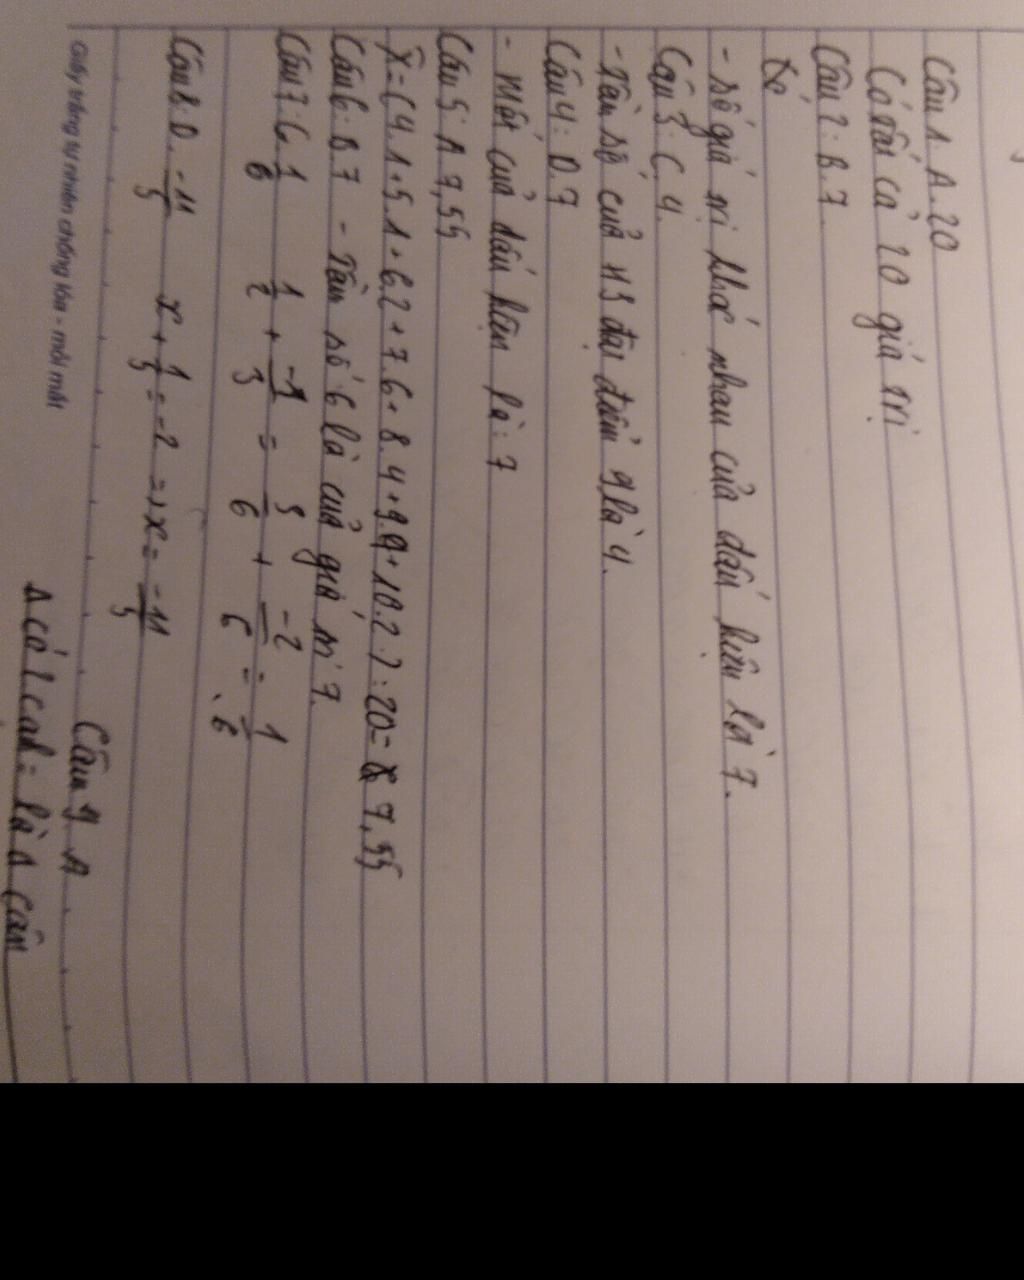 Câu 1. A. 20
Có tất cả 20 giá trị
Câu 2: B. 7
- Số giá trị khác nhau của dấu hiệu là 7.
Câu 3: C. 4
- Tần số của HS đạt điểm 9 là 4.
Câu 4: D. 7
- Mốt của dấu hiệu là: 7
Câu 5: A 7,55
X̄ = (4.1+5.1+6.2+7.6+8.4+9.4+10.2.):20= 7,55
Câu 6: B. 7 - Tần số 6 là của giá trị 7.
Câu 7: C. 1/6 1/2 + -1/3 = 3/6 + -2/6 = 1/6
Câu 8: D. -11/5 x + 1/5 = -2 => x = -11/5
Câu 9 A
Δ có 2 cạh = là Δ cân
Giấy trắng tự nhiên chống lóa - mỏi mắt